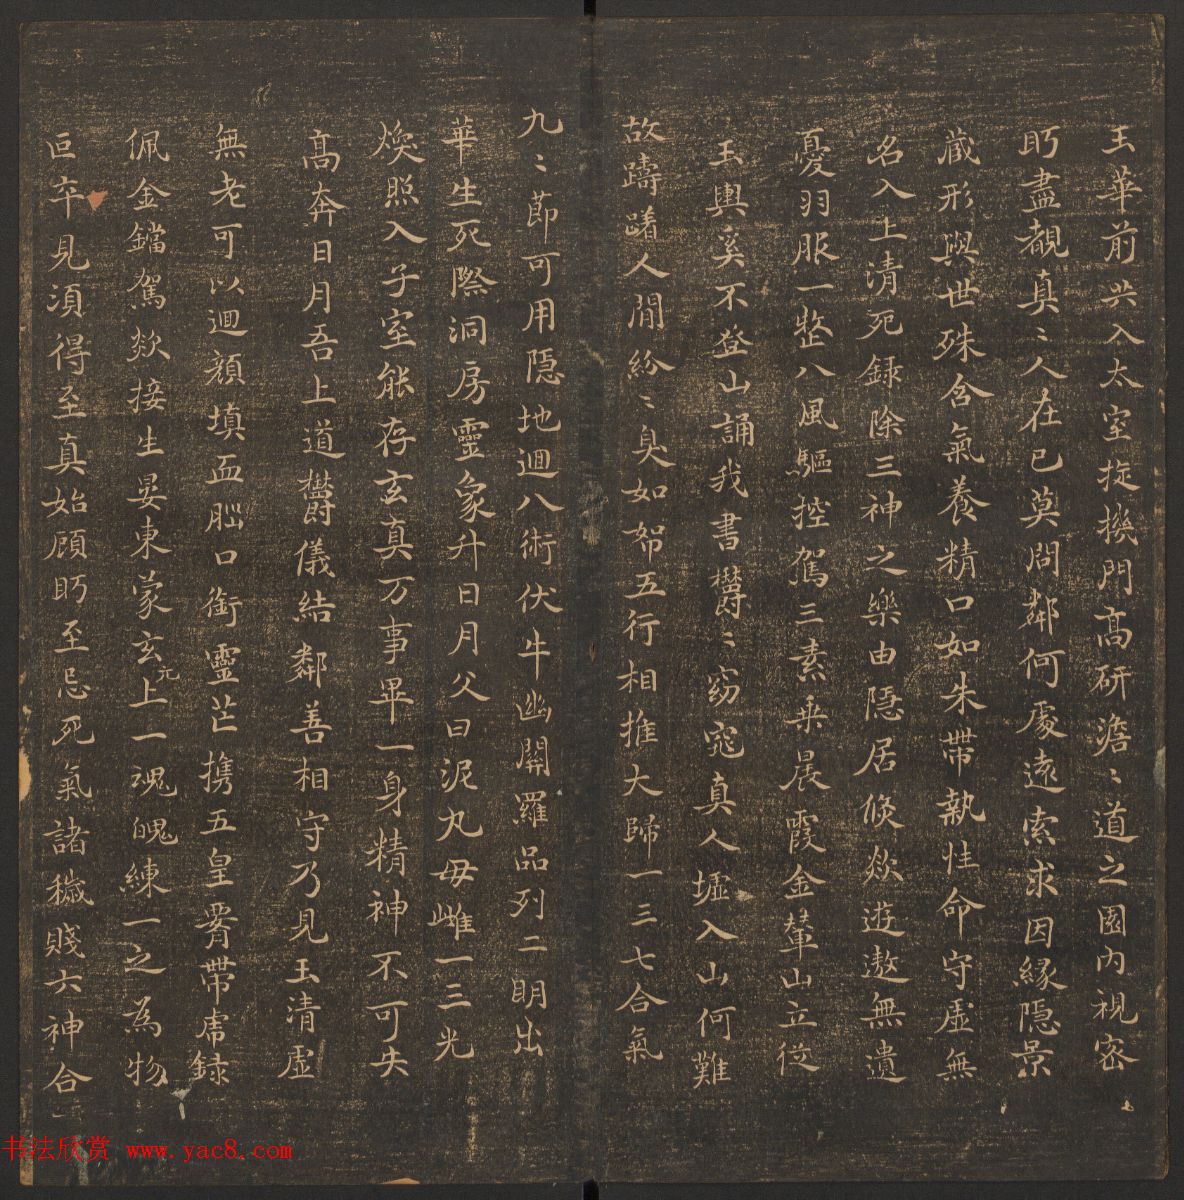 玉華前共入太室璇機門高研澹〻道之園內視密
盻盡覩真〻人在己莫問鄰何處遠索求因緣隱景
藏形與世殊含氣養精口如朱帶執性命守虛無
名入上清死錄除三神之樂由隱居倏欻遊遨無遺
憂羽服一整八風驅控駕三素乘晨霞金輦山立從
玉輿奚不登山誦我書欝〻窈窕真人墟入山何難
故躊躇人間紛〻臭如帤五行相推大歸一三七合氣
九〻節可用隱地迴八術伏牛幽闕羅品列二明出
華生死際洞房靈象升日月父曰泥丸母雌一三光
煥照入子室能存玄真万事畢一身精神不可失
高奔日月吾上道欝儀結鄰善相守乃見玉清虛
無老可以迴顏填血腦口銜靈芒攜五皇霄帶虎錄
佩金鐺駕欻接生晏東蒙玄元上一魂魄練一之為物
叵卒見湏得至真始顧盻至忌死氣諸穢賤六神合
书法欣赏 www.yac8.com